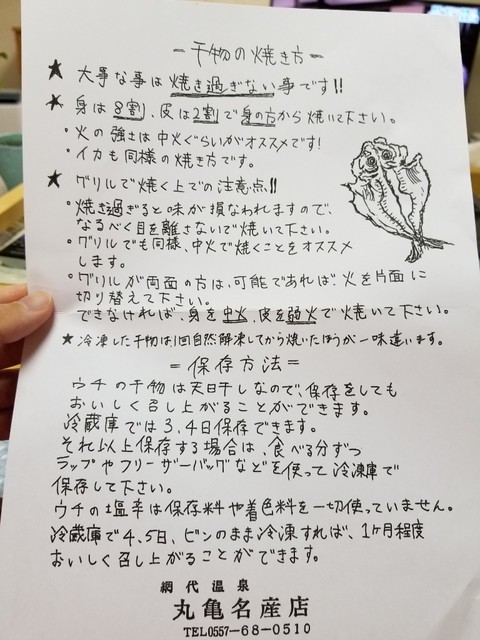 －干物の焼き方－
★ 大事な事は焼き過ぎない事です!!
★ 身は8割、皮は2割で身の方から焼いて下さい。
・火の強さは中火ぐらいがオススメです!
・イカも同様の焼き方です。
★ グリルで焼く上での注意点!!
・焼き過ぎると味が損なわれますので、
なるべく目を離さないで焼いて下さい。
・グリルでも同様、中火で焼くことをオススメ
します。
・グリルが両面の方は、可能であれば、火を片面に
切り替えて下さい。
できなければ、身を中火、皮を弱火で焼いて下さい。
★冷凍した干物は1回自然解凍してから焼いたほうが一味違います。
＝保存方法＝
ウチの干物は天日干しなので、保存をしても
おいしく召し上がることができます。
冷蔵庫では3,4日保存できます。
それ以上保存する場合は、食べる分ずつ
ラップやフリーザーバッグなどを使って冷凍庫で
保存して下さい。
ウチの塩辛は保存料や着色料を一切使っていません。
冷蔵庫で4,5日、ビンのまま冷凍すれば、1ヶ月程度
おいしく召し上がることができます。
網代温泉
丸亀名産店
TEL0557-68-0510